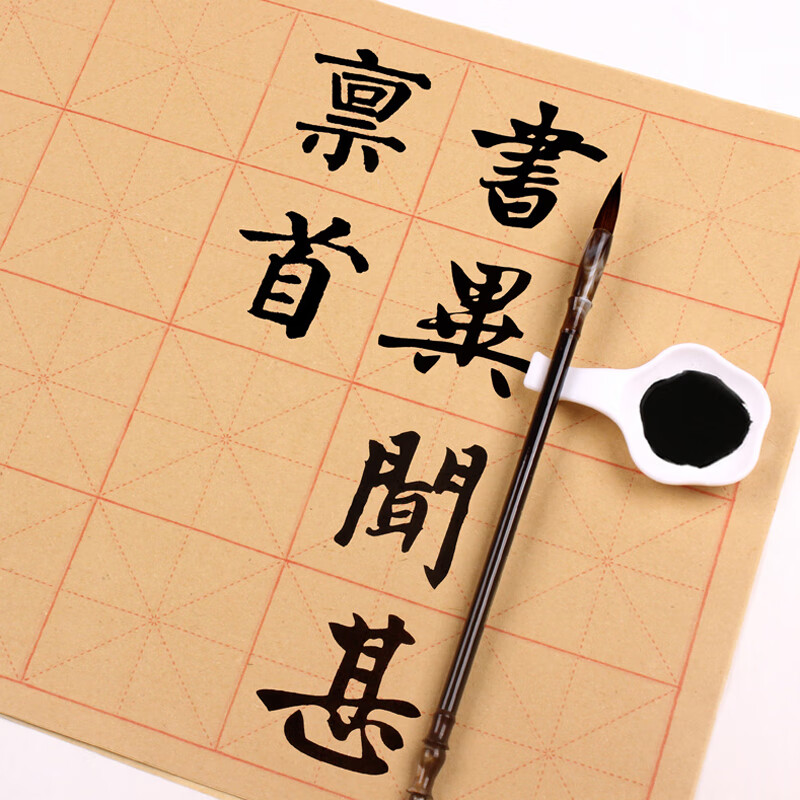 書異聞甚
禀首